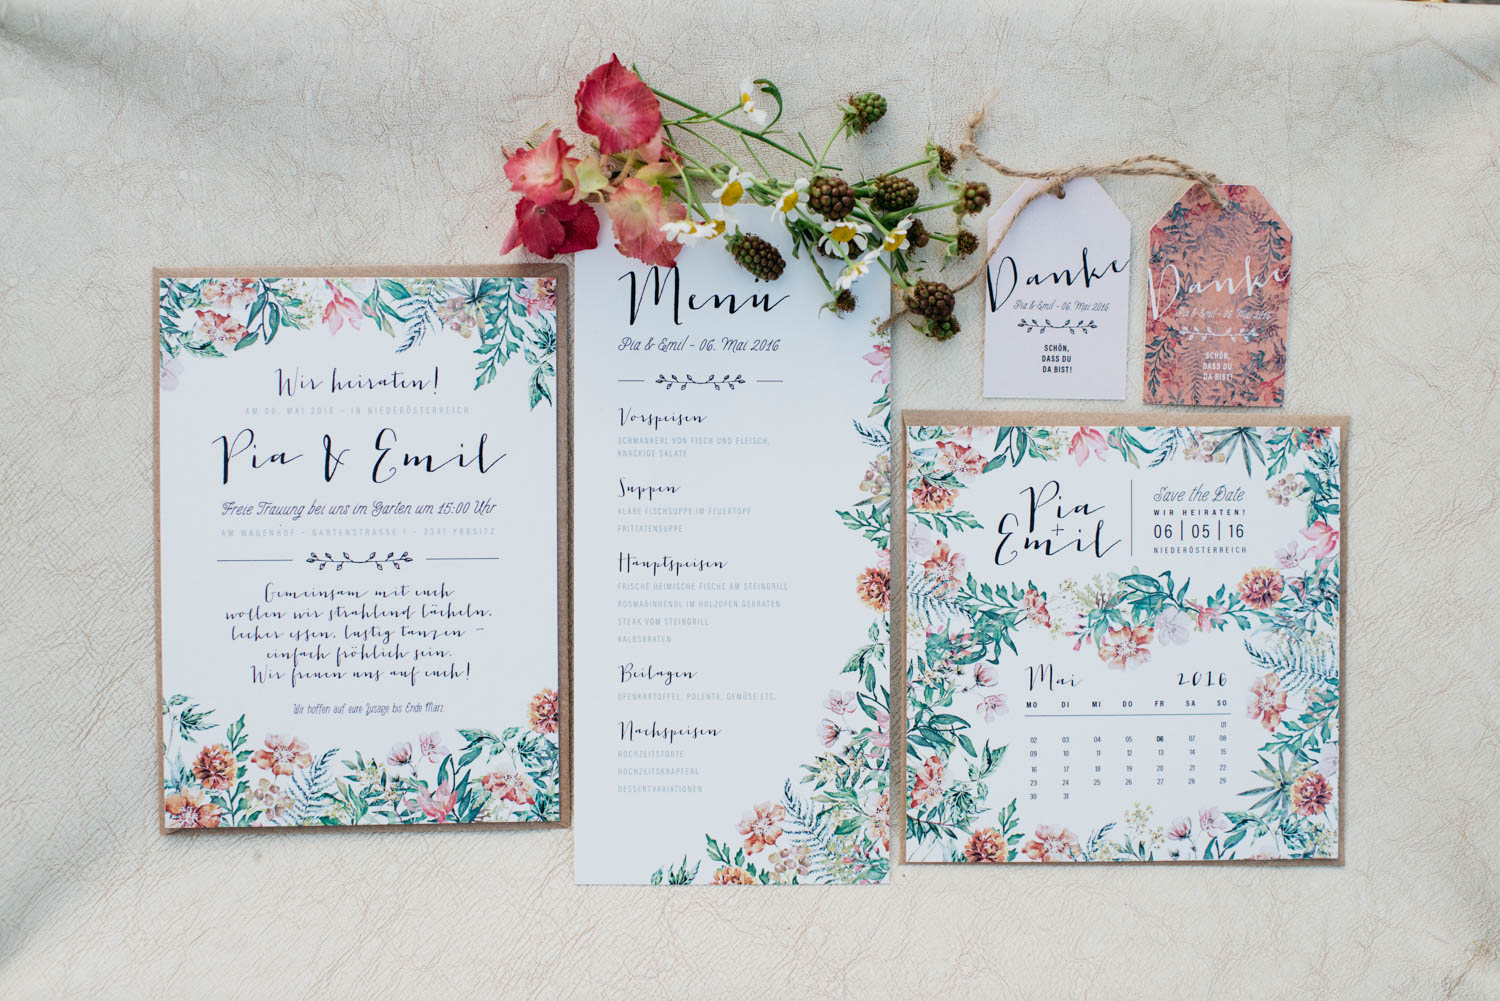 Wir heiraten!
AM 06. MAI 2016 - IN NIEDERÖSTERREICH
Pia & Emil
Freie Trauung bei uns im Garten um 15:00 Uhr
AM WAGENHOF - GARTENSTRASSE 1 - 3341 YBBSITZ
Gemeinsam mit euch
wollen wir strahlend lächeln,
lecker essen, lustig tanzen –
einfach fröhlich sein.
Wir freuen uns auf euch!
Wir hoffen auf eure Zusage bis Ende März.
Menü
Pia & Emil - 06. Mai 2016
Vorspeisen
SCHMANKERL VON FISCH UND FLEISCH,
KNACKIGE SALATE
Suppen
KLARE FISCHSUPPE IM FEUERTOPF
FRITTATENSUPPE
Hauptspeisen
FRISCHE HEIMISCHE FISCHE AM STEINGRILL
ROSMARINHENDL IM HOLZOFEN GEBRATEN
STEAK VOM STEINGRILL
KALBSBRATEN
Beilagen
OFENKARTOFFEL, POLENTA, GEMÜSE ETC.
Nachspeisen
HOCHZEITSTORTE
HOCHZEITSKRAPFERL
DESSERTVARIATIONEN
Danke
Pia & Emil - 06. Mai 2016
SCHÖN,
DASS DU
DA BIST!
Danke
Pia & Emil - 06. Mai 2016
SCHÖN,
DASS DU
DA BIST!
Pia
+
Emil
Save the Date
WIR HEIRATEN!
06 | 05 | 16
NIEDERÖSTERREICH
Mai 2016
MO DI MI DO FR SA SO
01
02 03 04 05 06 07 08
09 10 11 12 13 14 15
16 17 18 19 20 21 22
23 24 25 26 27 28 29
30 31